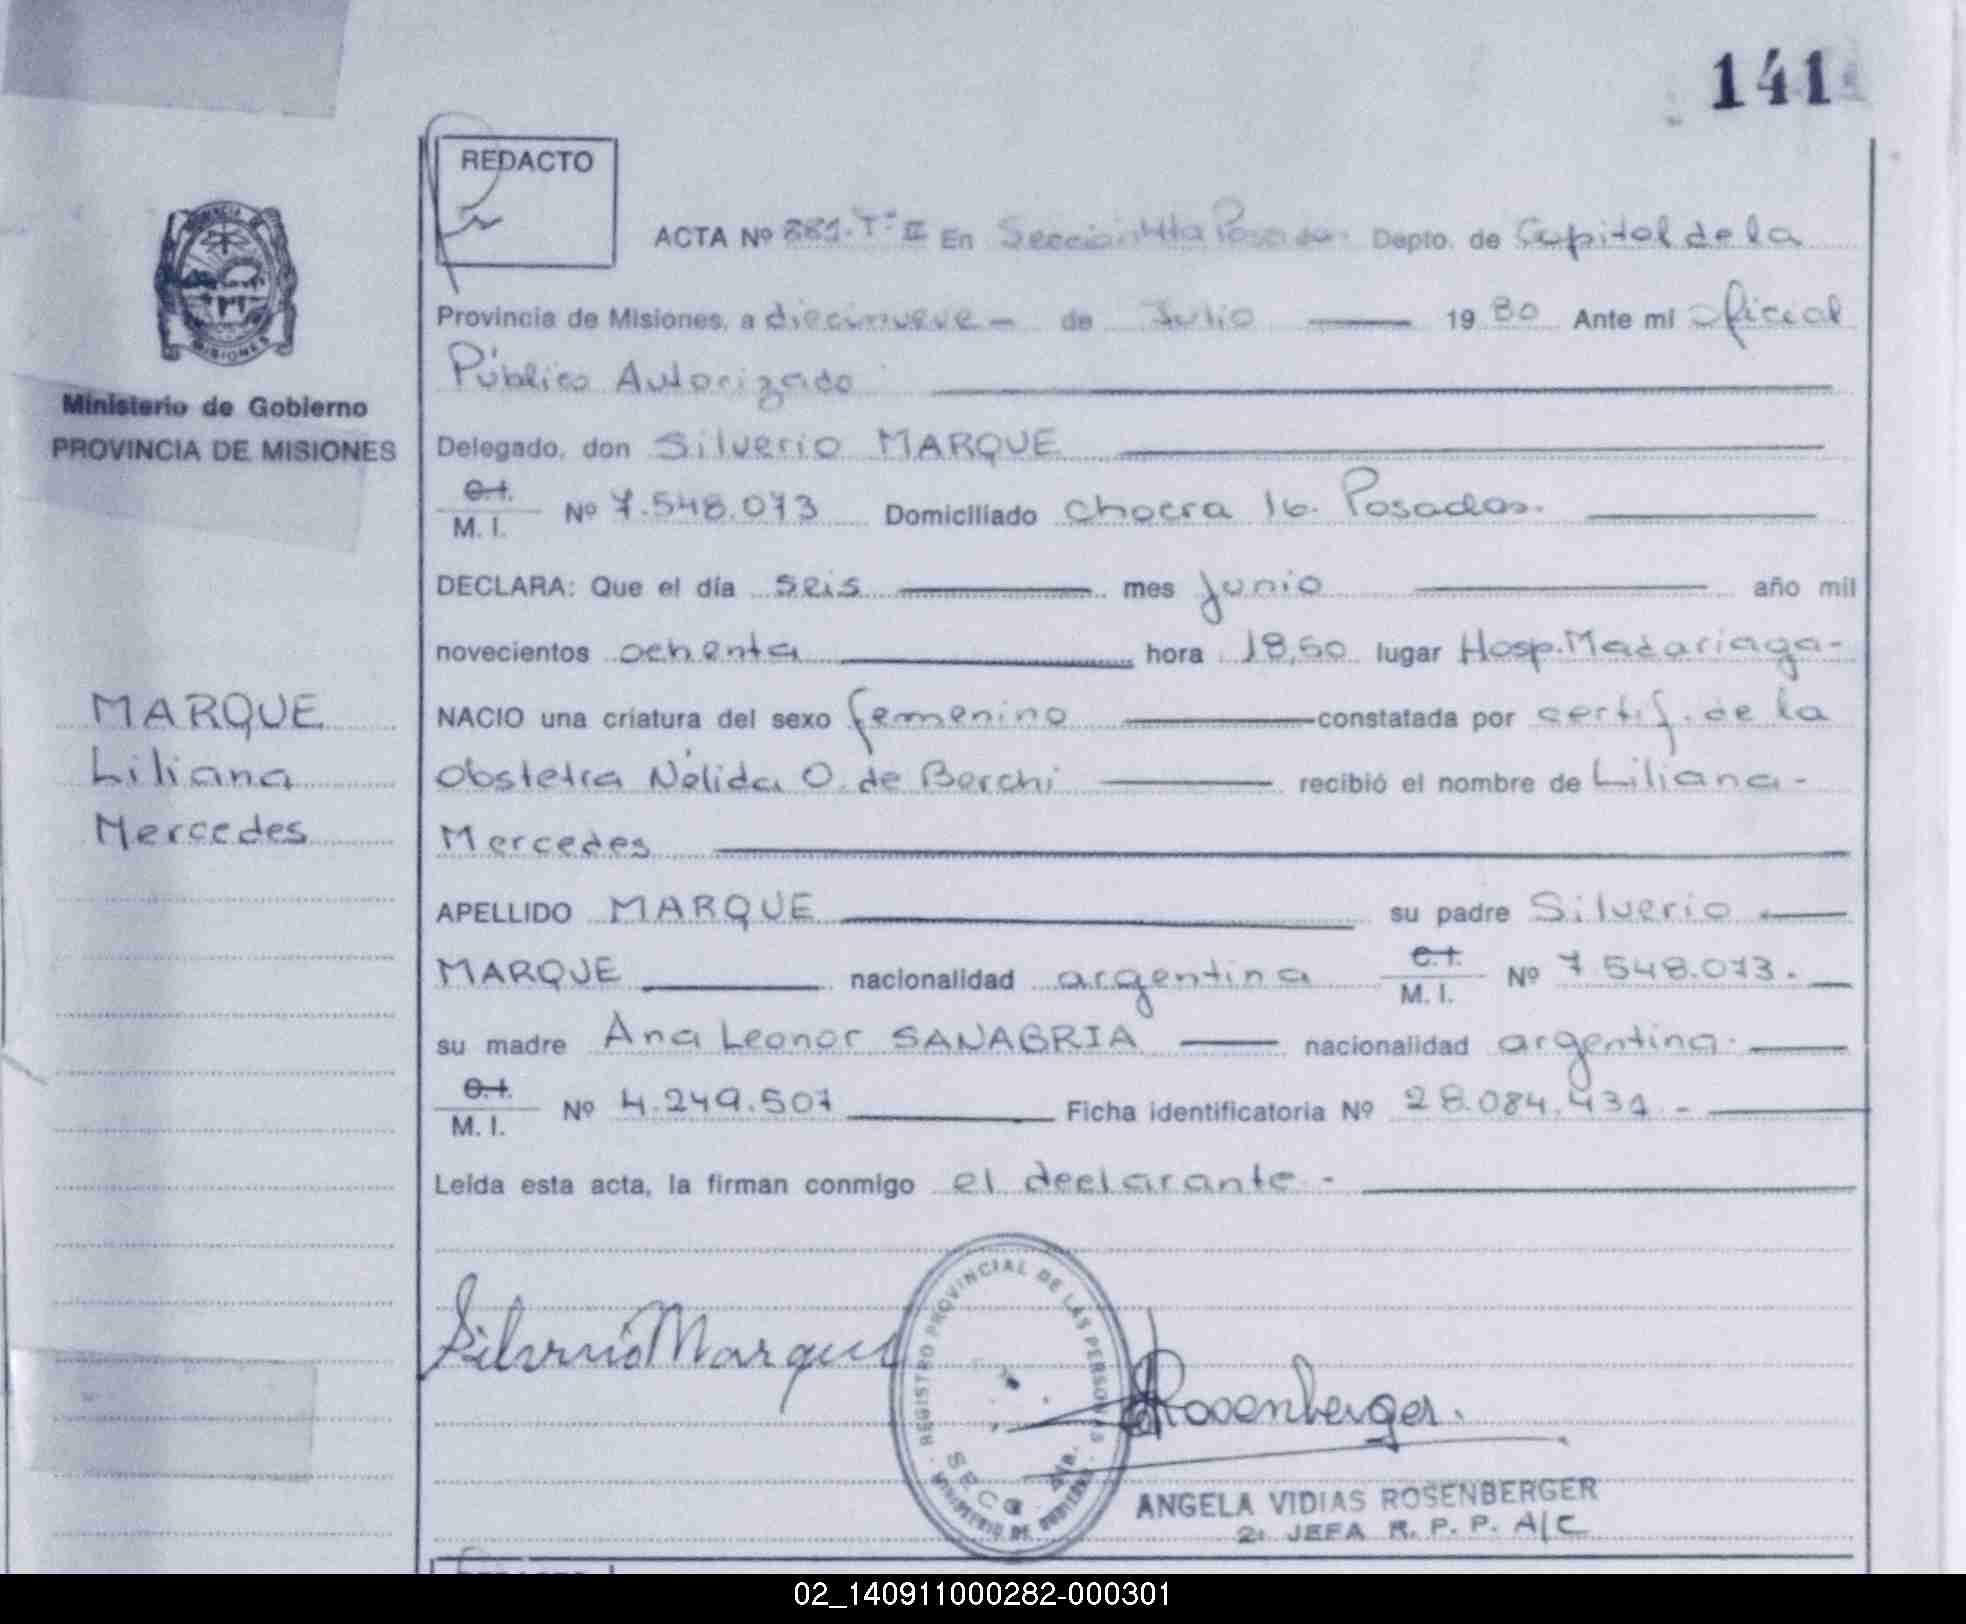 141
REDACTO
ACTA Nº 881. Tº II En Sección 4ta Posadas. Depto. de Capital de la
Provincia de Misiones, a diecinueve - de Julio 19 80 Ante mi Oficial
Público Autorizado
Delegado, don Silverio MARQUE
C.I.
M. I. Nº 7.548.073 Domiciliado chacra 16. Posadas.
DECLARA: Que el día seis mes junio año mil
novecientos ochenta hora 18,50 lugar Hosp. Madariaga-
NACIO una criatura del sexo femenino constatada por certif. de la
Obstetra Nélida O. de Berchi recibió el nombre de Liliana-
Mercedes
APELLIDO MARQUE su padre Silverio
MARQUE nacionalidad argentina C.I.
M. I. Nº 7.548.073.
su madre Ana Leonor SANABRIA nacionalidad argentina.
C.I.
M. I. Nº 4.249.507 Ficha identificatoria Nº 28.084.431-
Leída esta acta, la firman conmigo el declarante.-
PROVINCIA DE
MISIONES
Ministerio de Gobierno
PROVINCIA DE MISIONES
MARQUE
Liliana
Mercedes
Silverio Marque
REGISTRO PROVINCIAL DE LAS PERSONAS
SECC. 4ta.
MINISTERIO DE GOBIERNO
Rosenberger.
ANGELA VIDIAS ROSENBERGER
2: JEFA R. P. P. A/C
REDACTO
02_140911000282-000301